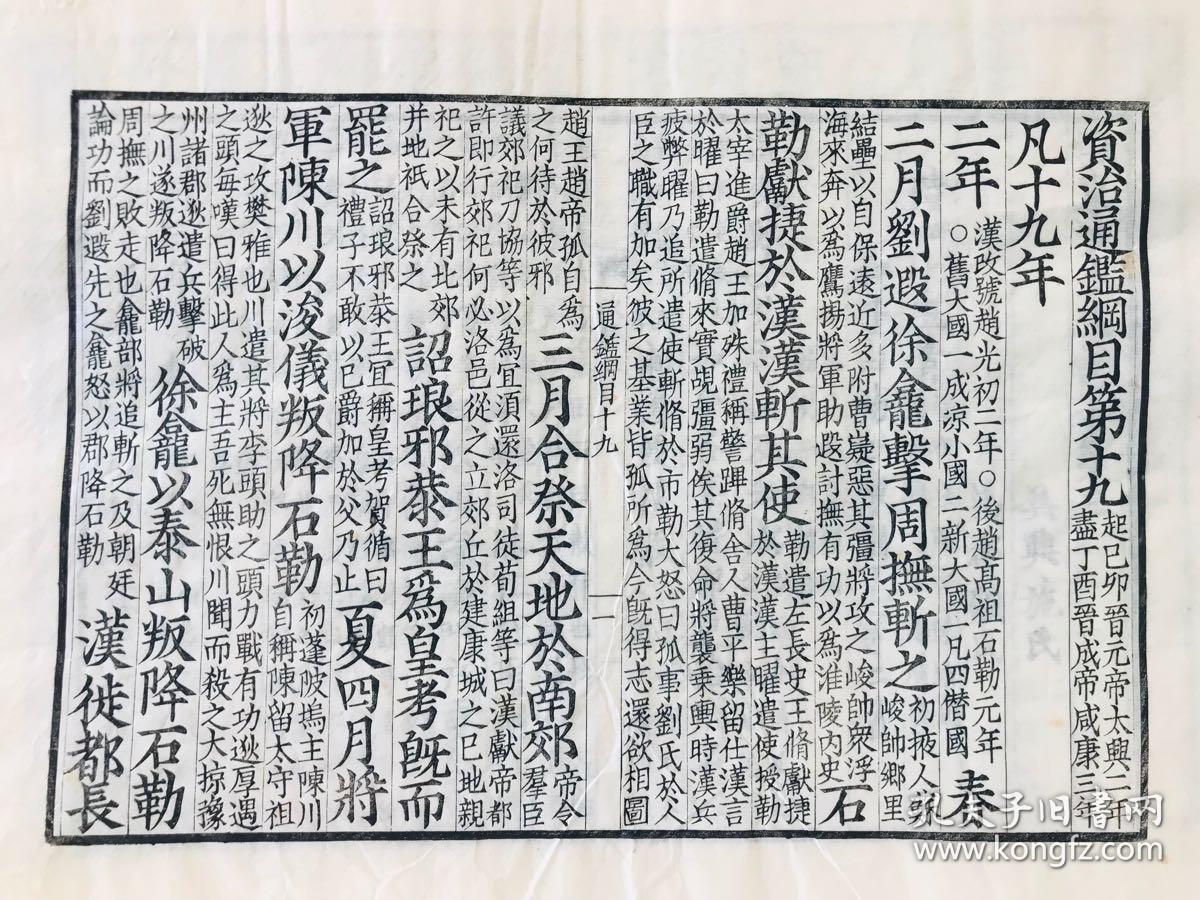 資治通鑑綱目第十九
起已卯晉元帝太興二年
盡丁酉晉成帝咸康三年
凡十九年
二年
漢改號趙光初二年○後趙高祖石勒元年
○舊大國一成凉小國二新大國一凡四僭國
春
二月劉遐徐龕擊周撫斬之
初掖人蘇
峻帥鄉里
結壘以自保遠近多附曹嶷惡其彊將攻之峻帥衆浮
海來奔以爲鷹揚將軍助遐討撫有功以爲淮陵内史
石
勒獻捷於漢漢斬其使
勒遣左長史王脩獻捷
於漢漢主曜遣使授勒
太宰進爵趙王加殊禮稱警蹕脩舍人曹平樂留仕漢言
於曜曰勒遣脩來實覘彊弱俟其復命將襲乗輿時漢兵
疲弊曜乃追所遣使斬脩於市勒大怒曰孤事劉氏於人
臣之職有加矣彼之基業皆孤所爲今旣得志還欲相圖
通鑑綱目十九
一
趙王趙帝孤自爲
之何待於彼邪
三月合祭天地於南郊
帝令
羣臣
議郊祀刀協等以爲宜湏還洛司徒荀組等曰漢獻帝都
許即行郊祀何必洛邑從之立郊丘於建康城之巳地親
祀之以未有比郊
并地祇合祭之
詔琅邪恭王爲皇考旣而
罷之
詔琅邪恭王宜稱皇考賀循曰
禮子不敢以己爵加於父乃止
夏四月將
軍陳川以浚儀叛降石勒
初蓬陂塢主陳川
自稱陳留太守祖
逖之攻樊雅也川遣其將李頭助之頭力戰有功逖厚遇
之頭每嘆曰得此人爲主吾死無恨川聞而殺之大掠豫
州諸郡逖遣兵擊破
之川遂叛降石勒
徐龕以泰山叛降石勒
周撫之敗走也龕部將追斬之及朝廷
論功而劉遐先之龕怒以郡降石勒
漢徙都長
孔夫子旧书网
www.kongfz.com